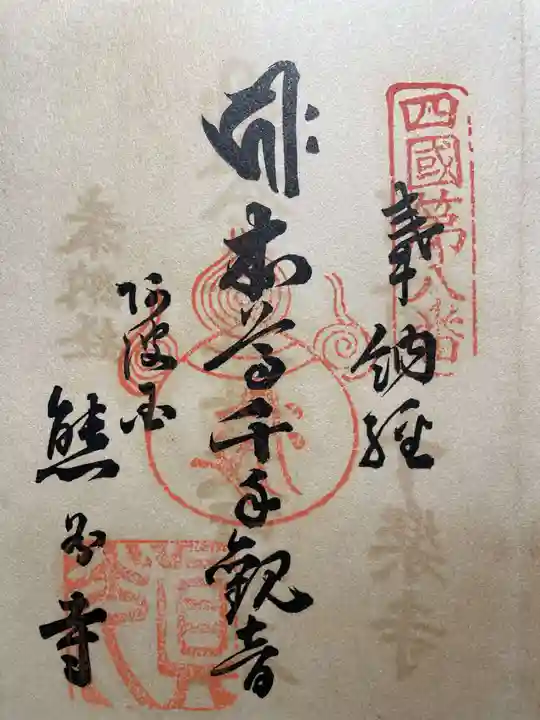 四國第八番
奉納経
本尊千手観音
阿波国
熊谷寺